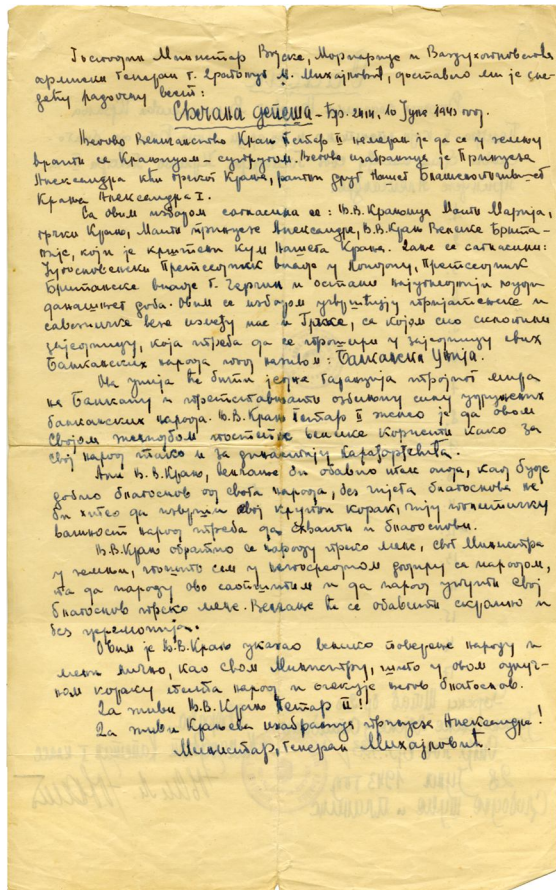 Господин Министар Војске, Морнарице и Ваздухопловства
армиски генерал г. Драгољуб М. Михајловић, доставио ми је сле-
дећу радосну вест:
Свечана депеша – Бр. 2414, 10 Јуна 1943 год.
Његово Величанство Краљ Петар II намеран је да се у земљу
врати са Краљицом – супругом. Његова изабраница је Принцеза
Александра кћи грчког Краља,
Краља Александра I.
Са овим избором сагласили се: Њ.В. Краљица Мати Марија,
грчки Краљ, Мати принцезе Александре, Њ.В. Краљ Велике Брита-
није, који је крштени кум Нашега Краља. Даље се сагласили:
Југословенски Претседник владе у Лондону, Претседник
Британске владе Г. Черчил и остали
данашњег доба. Овим се избором учвршћују пријатељске и
савезничке везе између нас и Грчке, са којом смо склопили
заједницу, која треба да се прошири у заједницу свих
Балканских народа под називом: Балканска Унија.
Та унија ће бити једна гаранција трајног мира
на Балкану и претстављати озбиљну силу удружених
балканских народа. Њ.В. Краљ Петар II желео је да овом
својом женидбом постигне велике користи како за
свој народ тако и за династију Карађорђевића.
Али Њ.В. Краљ, венчање би обавио тек онда, кад буде
добио благослов од свога народа, без чијега благослова не
би хтео да повуче овај крупни корак, чију политичку
важност народ треба да схвати и благослови.
Њ.В. Краљ обратио се народу преко мене, свог Министра
у земљи, пошто сам у непосредном додиру са народом,
та да народу ово саопштим и да народ упути свој
благослов преко мене. Венчање ће се обавити скромно и
без церемонија.
Овим је Њ.В. Краљ указао велико поверење народу и
мени лично, као свом Министру, што у овом одлуч-
ном кораку пита народ и очекује његов благослов.
Да живи Њ.В. Краљ Петар II!!
Да живи Краљева изабраница принцеза Александра!
Министар, Генерал Михајловић.